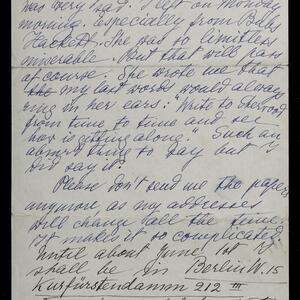 was very sad. I left on Monday
morning. especially from Babs
Hackett. She was so limitless
miserable. But that will pass
of course. She wrote me that
the my last words would always
ring in her ears: "Write to Sherwood
from time to time and see
how is getting along." Such an
absurd thing to say but I
did say it.
Please don't send me the papers
anymore as my addresses
will change all the time.
It makes it so complicated.
Until about June 1st I
shall be in Berlin W. 15
Kurfürstendamm 212 III